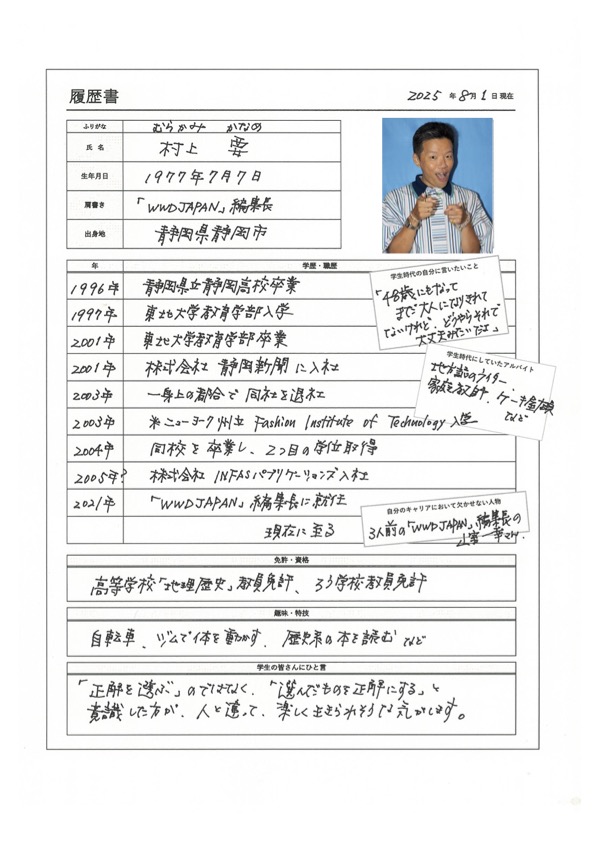 履歴書
2025 年 8月 1 日 現在
ふりがな むらかみ かなめ
氏 名 村上 要
生年月日 1977年7月7日
肩書き 「WWDJAPAN」編集長
出身地 静岡県静岡市
年 学歴・職歴
1996年 静岡県立静岡高校卒業
1997年 東北大学教育学部入学
2001年 東北大学教育学部卒業
2001年 株式会社 静岡新聞に入社
2003年 一身上の都合で同社を退社
2003年 米ニューヨーク州立 Fashion Institute of Technology 入学
2004年 同校を卒業し、2つ目の学位取得
2005年? 株式会社 INFASパブリケーションズ入社
2021年 「WWDJAPAN」編集長に就任
現在に至る
学生時代の自分に言いたいこと
「48歳にもなって
まだ大人になりきれて
ないけれど、どうやらそれで
大丈夫みたいだよ」
学生時代にしていたアルバイト
地方誌のライター、
家庭教師、ケーキ屋
など
自分のキャリアにおいて欠かせない人物
3人前の「WWDJAPAN」編集長の
山室一幸さん。
免許・資格
高等学校「地理歴史」教員免許、ろう学校教員免許
趣味・特技
自転車、ジムで体を動かす、歴史系の本を読む など
学生の皆さんにひと言
「正解を選ぶ」のではなく、「選んだものを正解にする」と
意識した方が、人と違って、楽しく生きられそうな気がします。